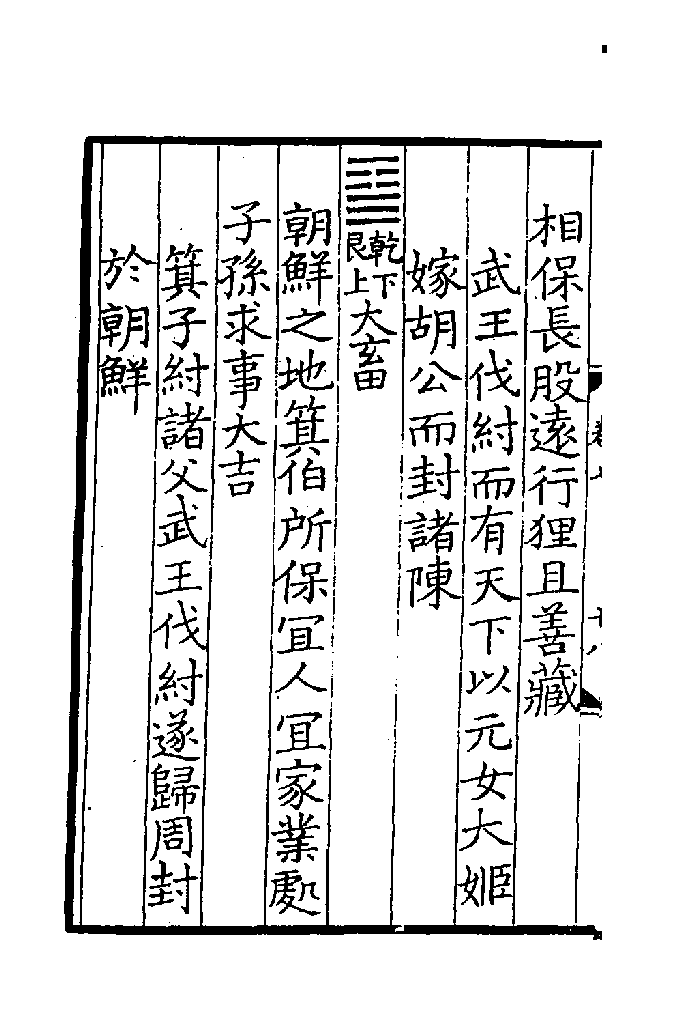 相保長股遠行狸且善藏
武王伐紂而有天下以元女大姬
嫁胡公而封諸陳
䷙乾下艮上大畜
朝鮮之地箕伯所保冝人冝家業處
子孫求事大吉
箕子紂諸父武王伐紂遂歸周封
於朝鮮